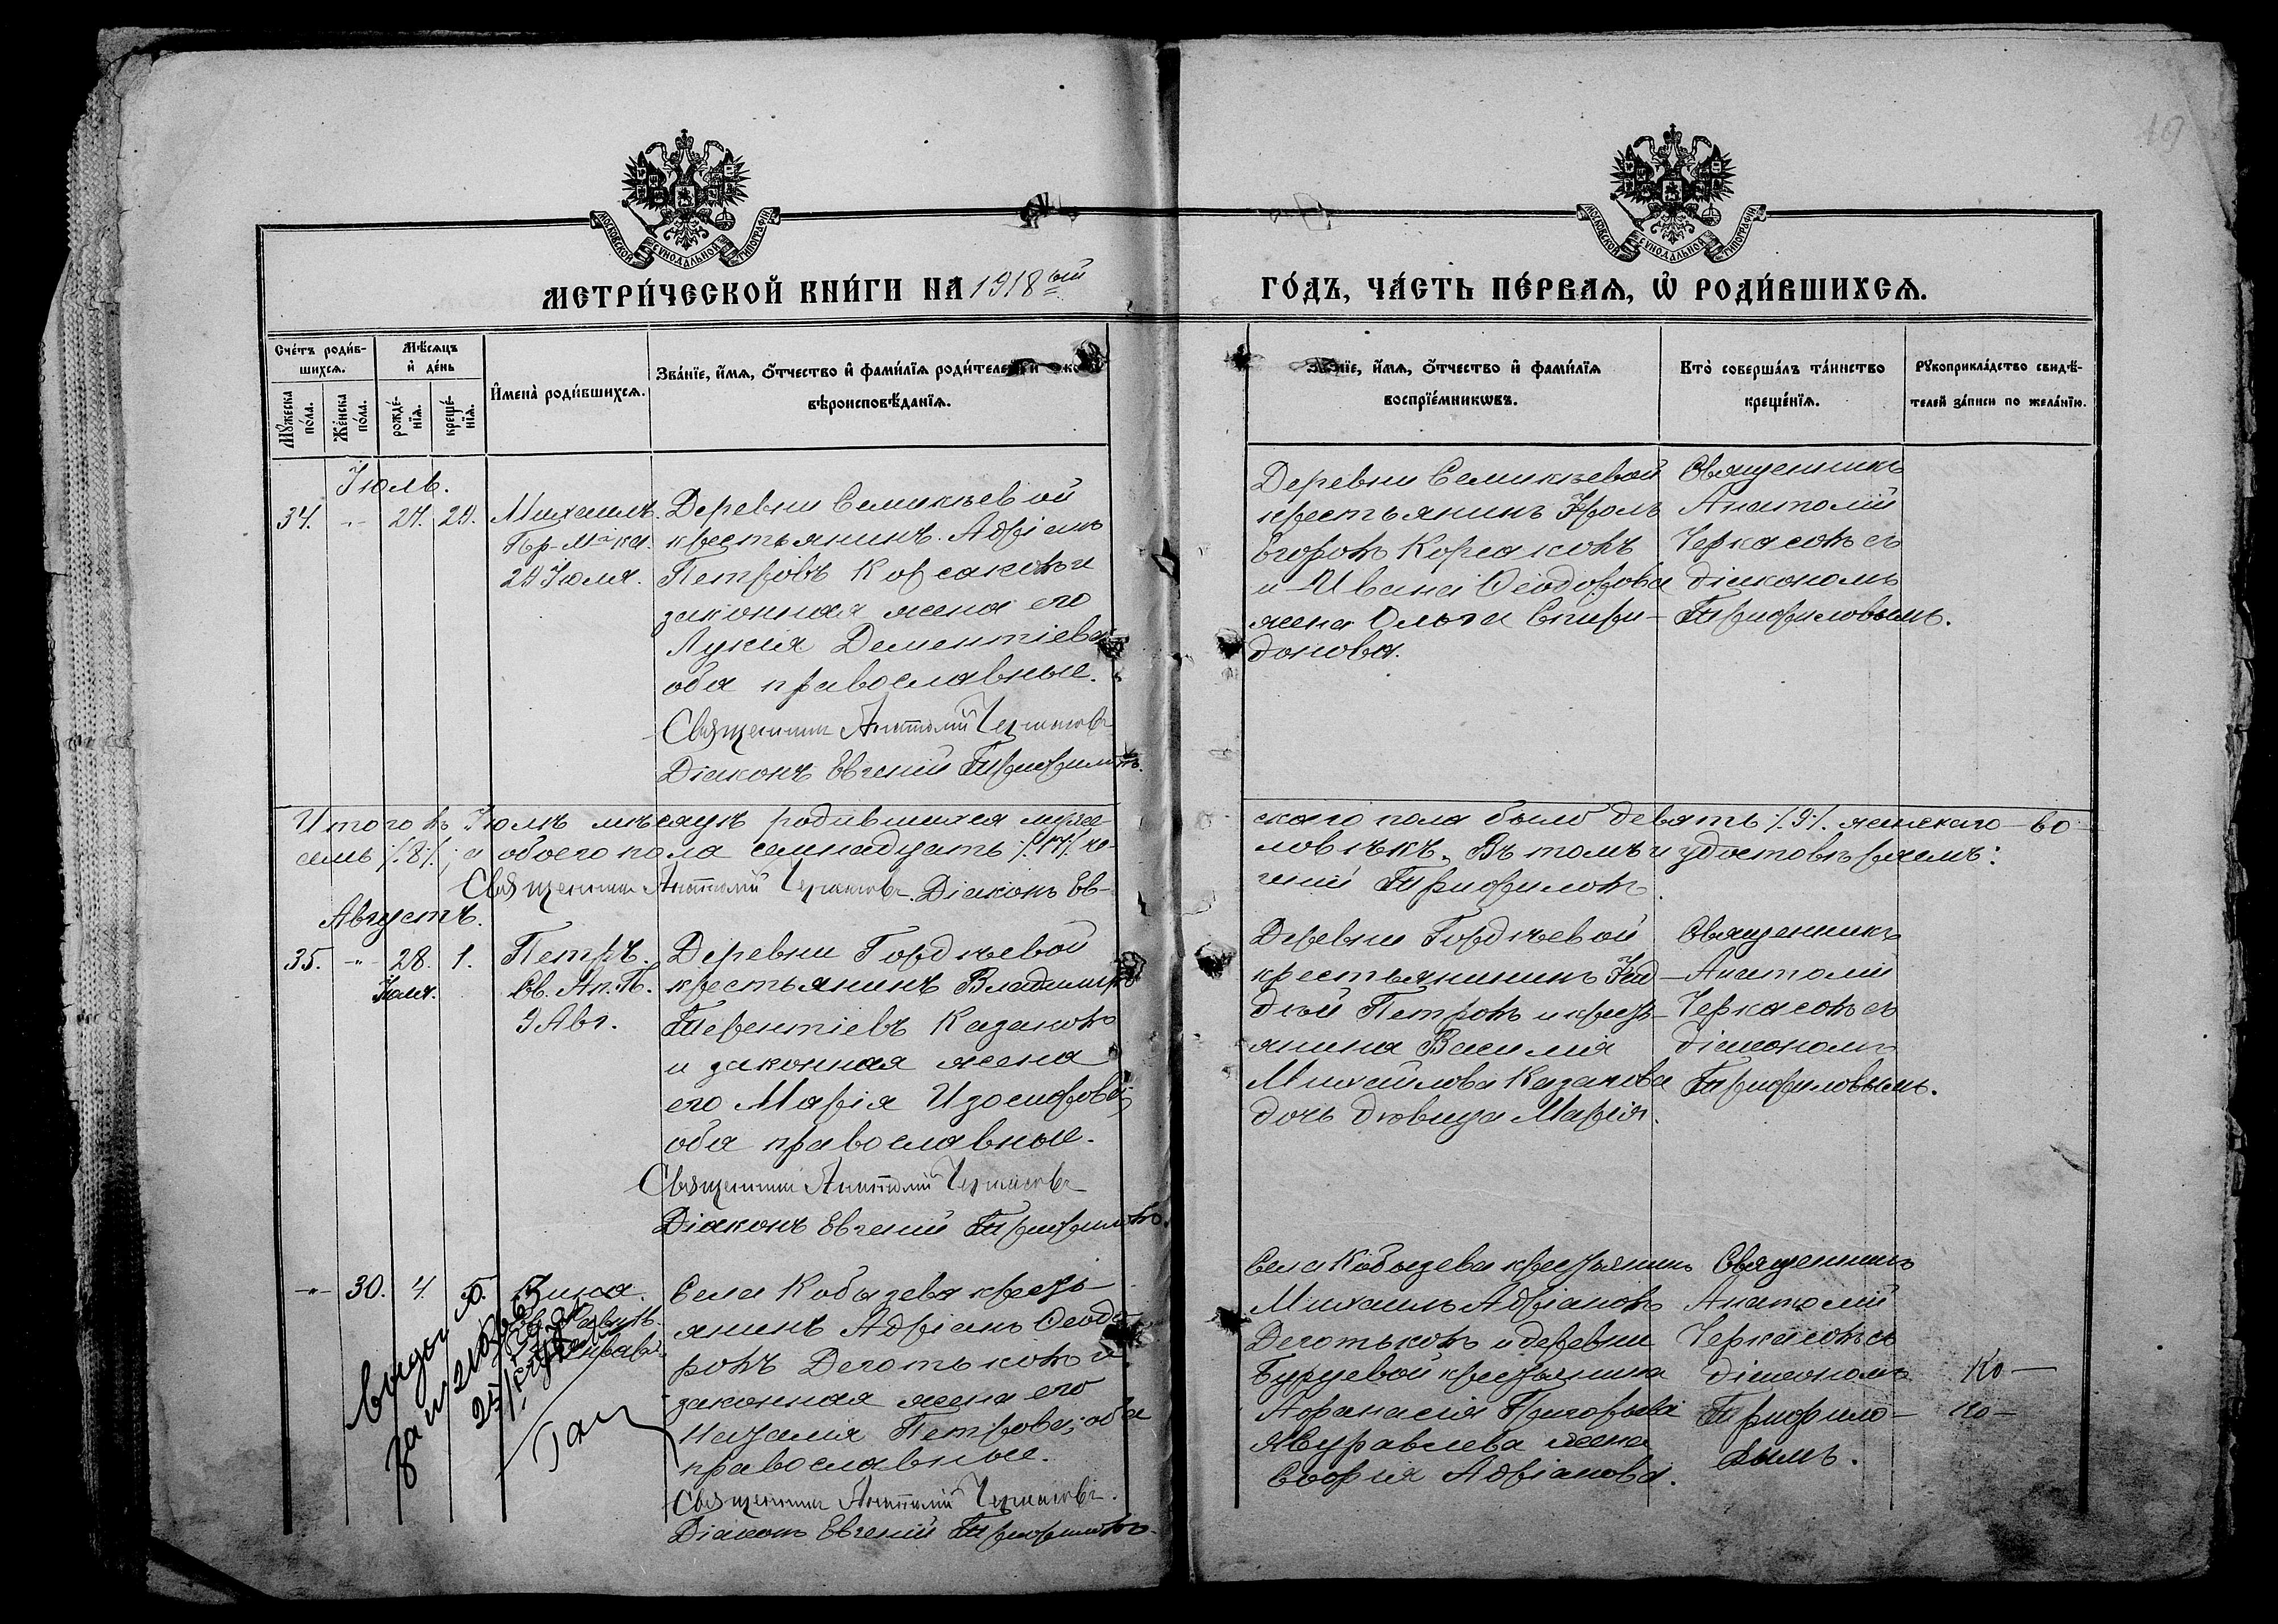 19
МОСКОВСКОЙ СУНОДАЛЬНОЙ ТИПОГРАФІИ
МОСКОВСКОЙ СУНОДАЛЬНОЙ ТИПОГРАФІИ
МЕТРИ́ЧЕСКОЙ КНИ́ГИ НА 1918ый
ГО́ДЪ, ЧА́СТЬ ПЕ́РВАѦ, Ѡ РОДИ́ВШИХСѦ.
Сче́тъ роди́в-
шихсѧ.
Мꙋ́жеска
по́ла.
Же́нска
по́ла.
Мѣ́сѧцъ
и҆ де́нь
рожде́-
нїѧ.
креще́-
нїѧ.
И҆мена̀ роди́вшихсѧ.
Зва́нїе, и҆́мѧ, ѻ҆́тчество и҆ фами́лїѧ роди́телей и
вѣроисповѣ́данїѧ.
Зва́нїе, и҆́мѧ, ѻ҆́тчество и҆ фами́лїѧ
воспрїе́мникѡвъ.
Кто̀ соверша́лъ та́инство
креще́нїѧ.
Рꙋкоприкла́дство свидѣ́-
телей за́писи по жела́нїю.
Іюль.
34. -"- 27. 29.
Михаилъ.
29 Іюля.
Деревни Семикѣевой
крестьянинъ Адріанъ
Петровъ Корсаковъ и
законная жена его
Лукія Дементіева
оба православные.
Священникъ Анатолій Черкасовъ
Діаконъ Евгеній Трифиловъ.
Деревни Семикѣевой
крестьянинъ Фролъ
Егоровъ Корсаковъ
и Ивана Ѳеодорова
жена Ольга Спири-
донова.
Священникъ
Анатолій
Черкасовъ съ
діакономъ
Трифиловымъ.
Итого въ Іюлѣ мѣсяцѣ родившихся муже-
скаго пола было девять /.9/. женскаго - во-
семь /.8/., а обоего пола семнадцать /.17/. че-
ловѣкъ. Въ томъ и удостовѣряемъ:
Священникъ Анатолій Черкасовъ. Діаконъ Ев-
геній Трифиловъ.
Августъ.
35. -"- 28. 1.
Іюля.
Петръ.
Св. Ап. П.
9 Авг.
Деревни Гордѣевой
крестьянинъ Владиміръ
Терентіевъ Казаковъ
и законная жена
его Марія Изосифова,
оба православные.
Священникъ Анатолій Черкасовъ
Діаконъ Евгеній Трифиловъ.
Деревни Гордѣевой
крестьянинъ
Петровъ и кресть-
янина Василія
Михайлова Казакова
дочь дѣвица Марія.
Священникъ
Анатолій
Черкасовъ съ
діакономъ
Трифиловымъ.
-"- 30. 4. 5.
Зина.
Села Кобызева кресть-
янинъ Адріанъ Ѳеодо-
ровъ Деготьковъ и
законная жена его
Наталія Петрова, оба
православные.
Священникъ Анатолій Черкасовъ.
Діаконъ Евгеній Трифиловъ.
Села Кобызева крестьянинъ
Михаилъ Адріановъ
Деготьковъ и деревни
Бурцевой крестьянина
Аѳанасія Григорьева
Журавлева жена
Софія Адріанова.
Священникъ
Анатолій
Черкасовъ съ
діакономъ
Трифило-
вымъ.